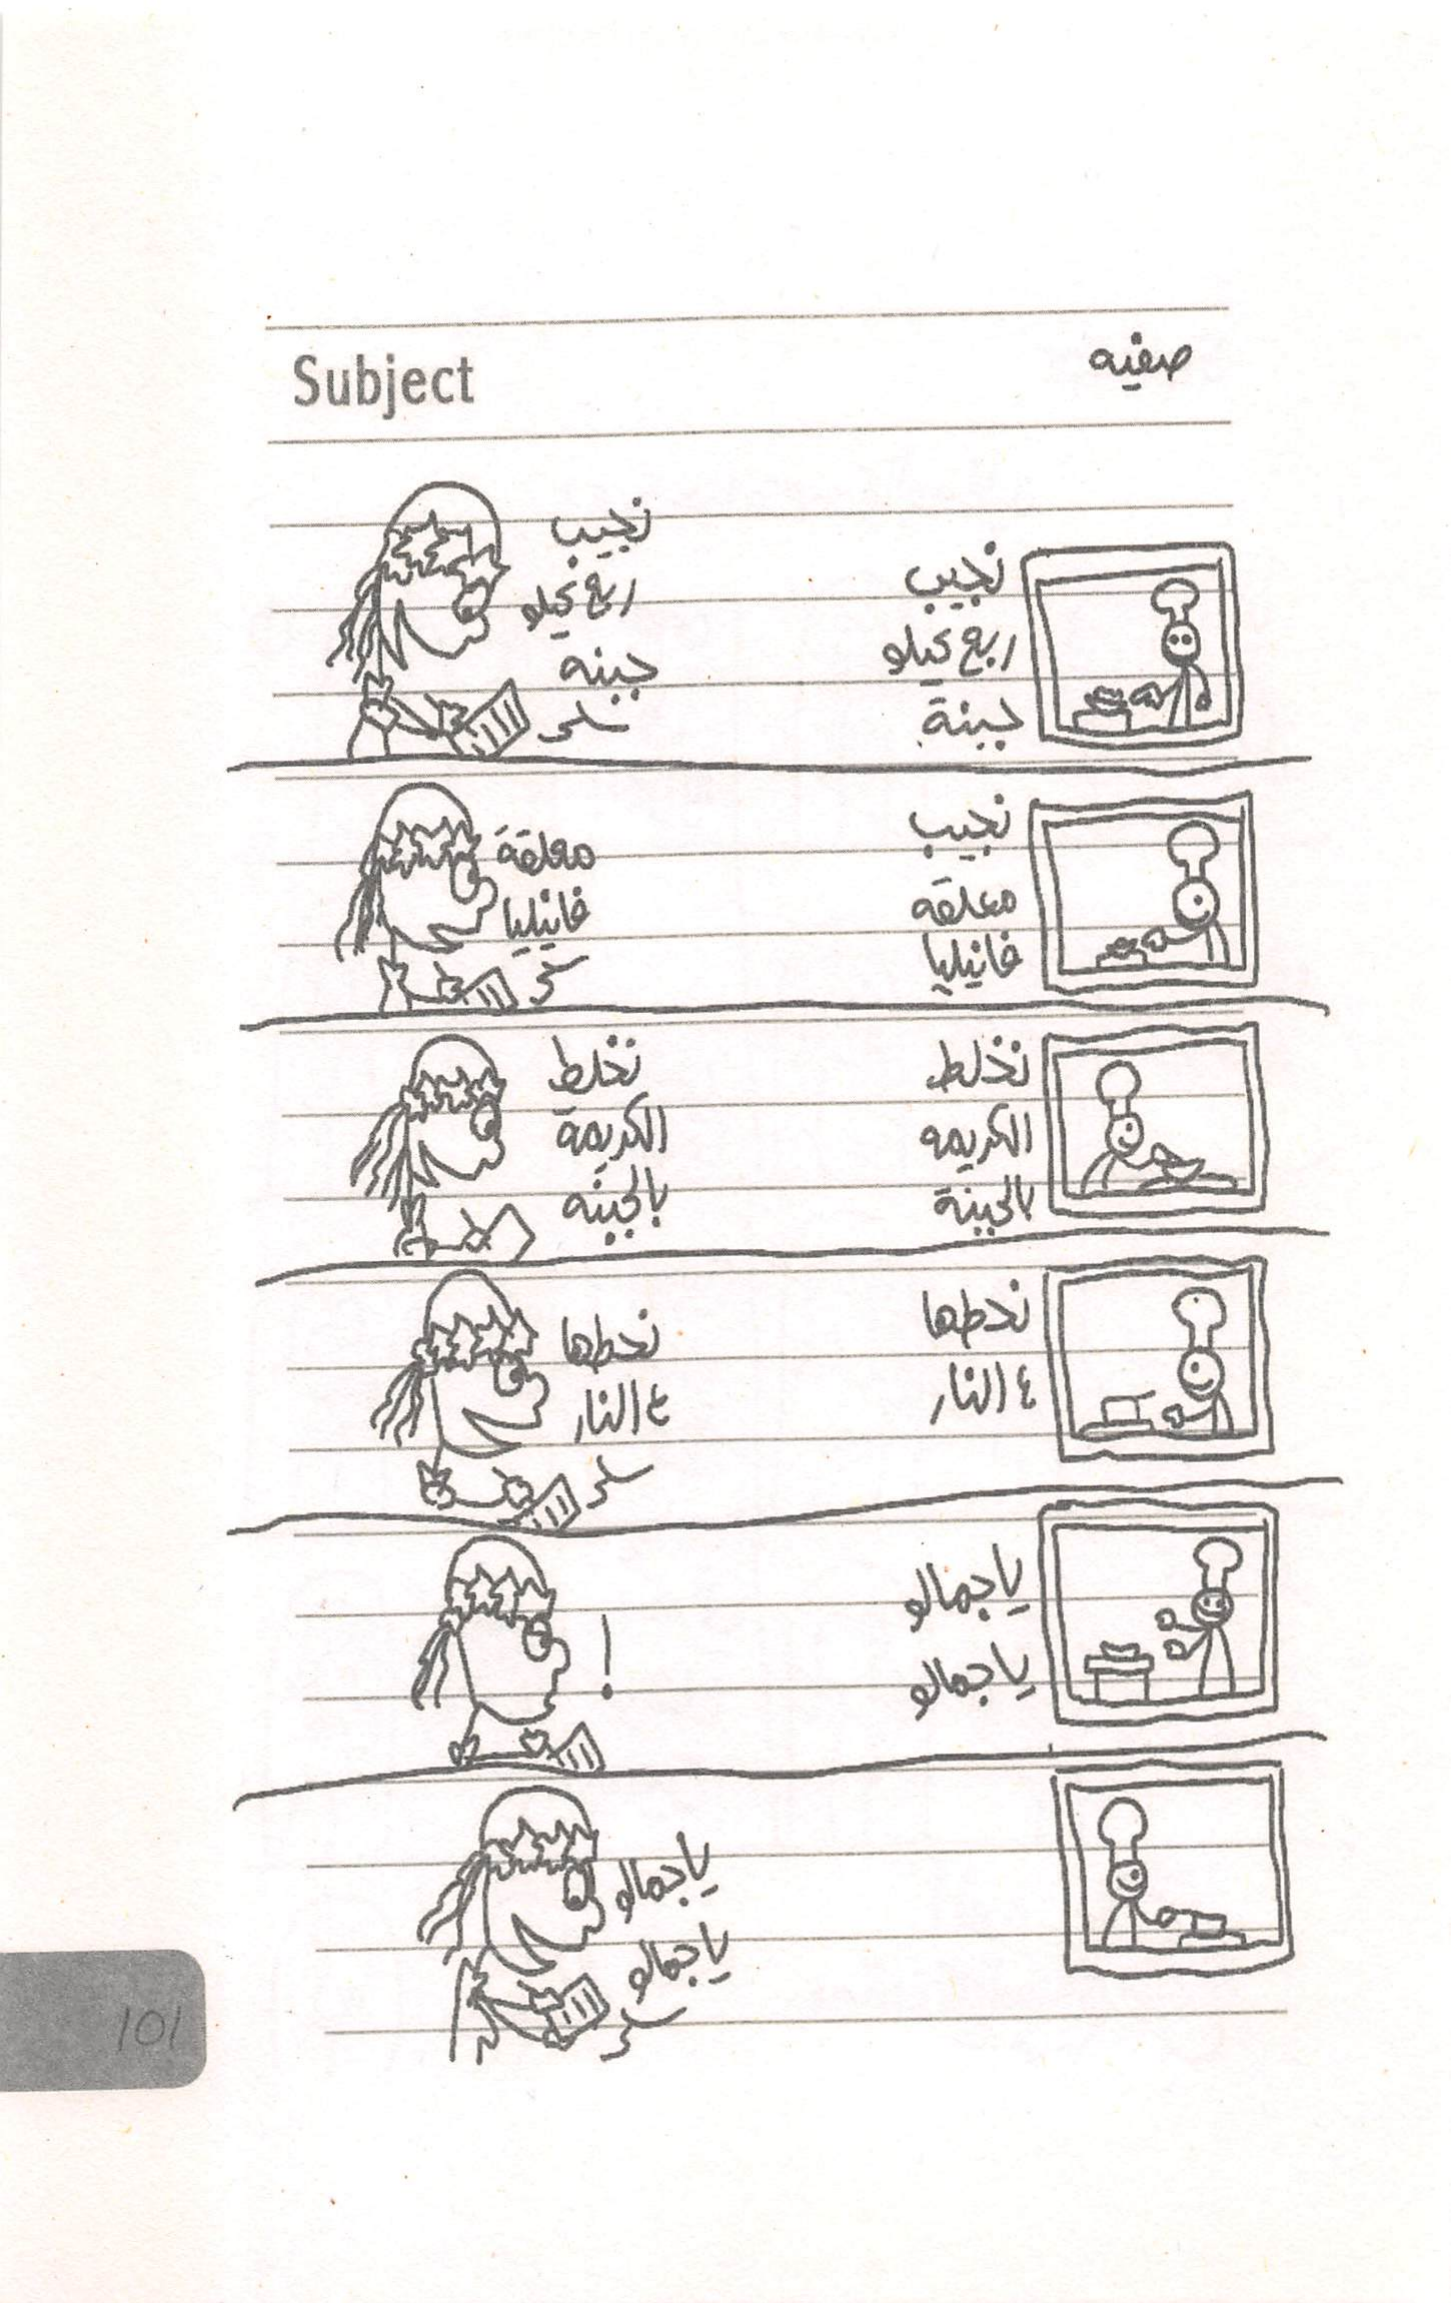 Subject
صفيه
نجيب
ربع كيلو
جبنة
نجيب
ربع كيلو
جبنه
نجيب
معلقه
فانيليا
معلقة
فانيليا
نخلط
الكريمه
بالجبنة
نخلط
الكريمة
بالجبنه
نحطها
ع النار
نحطها
ع النار
ياجمالو
ياجمالو
!
ياجمالو
ياجمالو
101